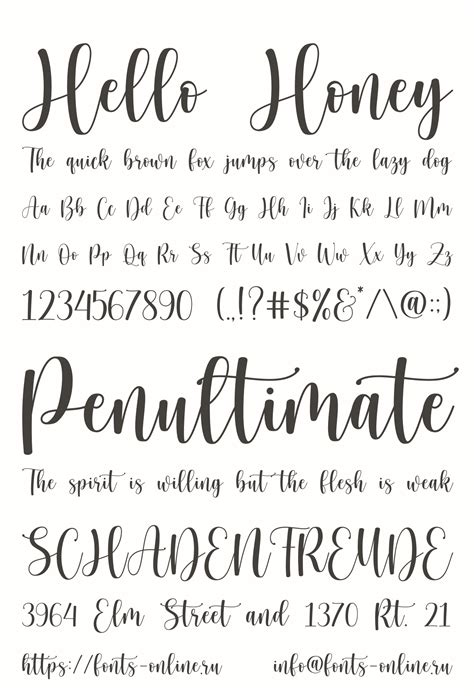 Hello Honey
The quick brown fox jumps over the lazy dog
Aa Bb Cc Dd Ee Ff Gg Hh Ii Jj Kk Ll Mm
Nn Oo Pp Qq Rr Ss Tt Uu Vv Ww Xx Yy Zz
1234567890 (.,!?#$%&*/\@:;)
Penultimate
The spirit is willing but the flesh is weak
SCHADENFREUDE
3964 Elm Street and 1370 Rt. 21
https://fonts-online.ru info@fonts-online.ru